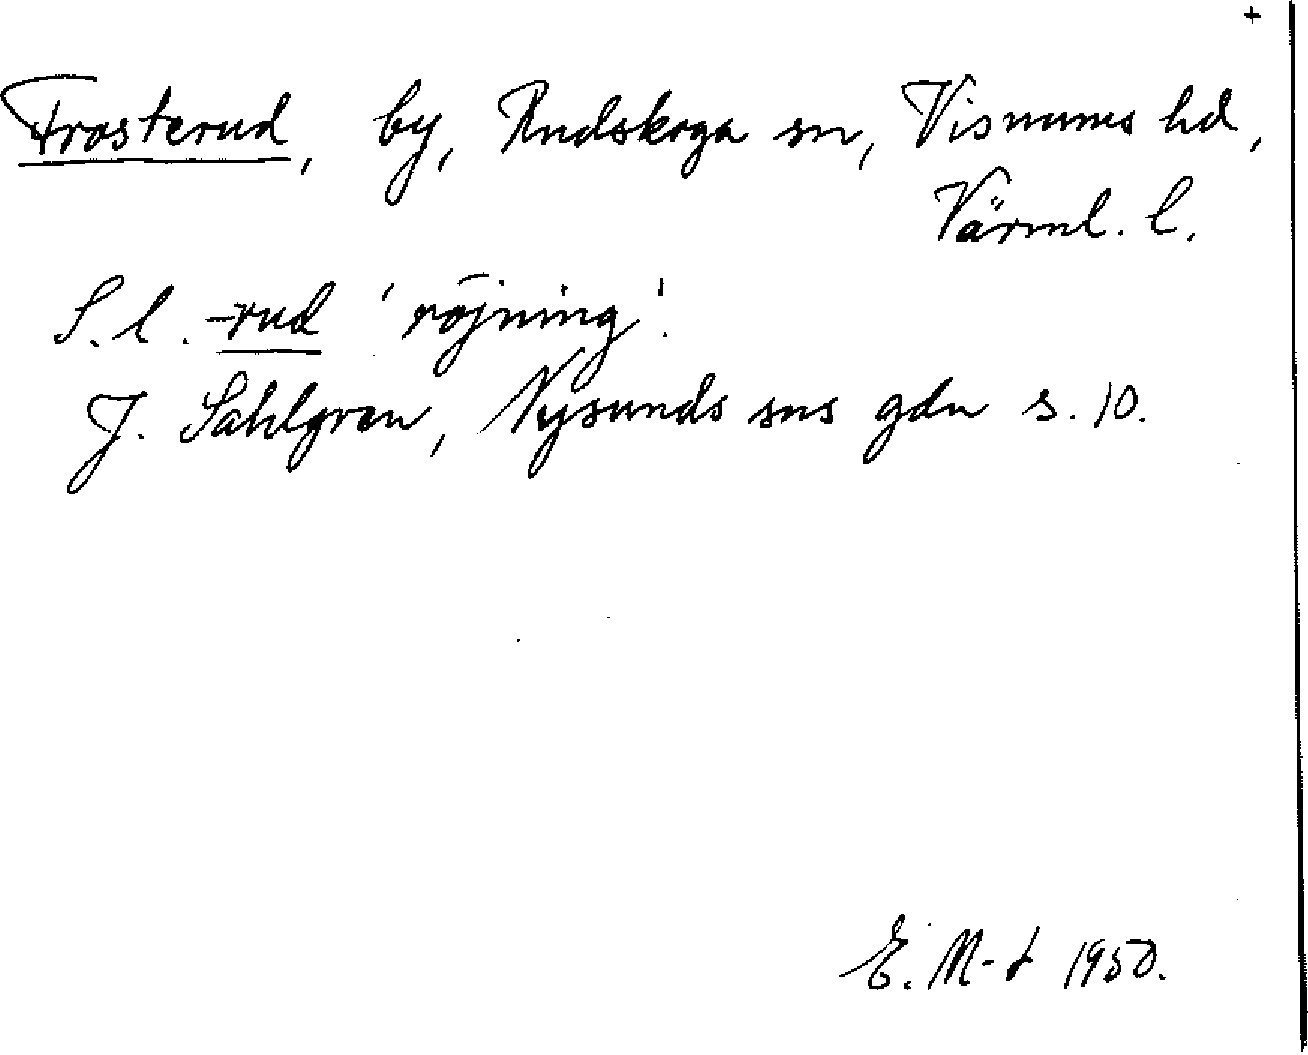 +
Frosterud, by, Rudskoga sn, Visnums hd,
Värml. l.
S. l. -rud 'röjning'.
J. Sahlgren, Nysunds sns gdn s. 10.
E. M-t 1950.